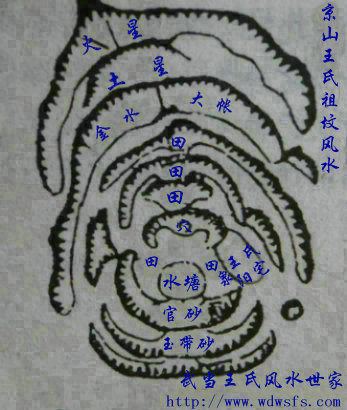 京山王氏祖坟风水
火星
土星
大帐
金水
田
田
田
穴
田
田
王氏
阳宅
水塘
官砂
玉带砂
武当王氏风水世家
http://www.wdwsfs.com